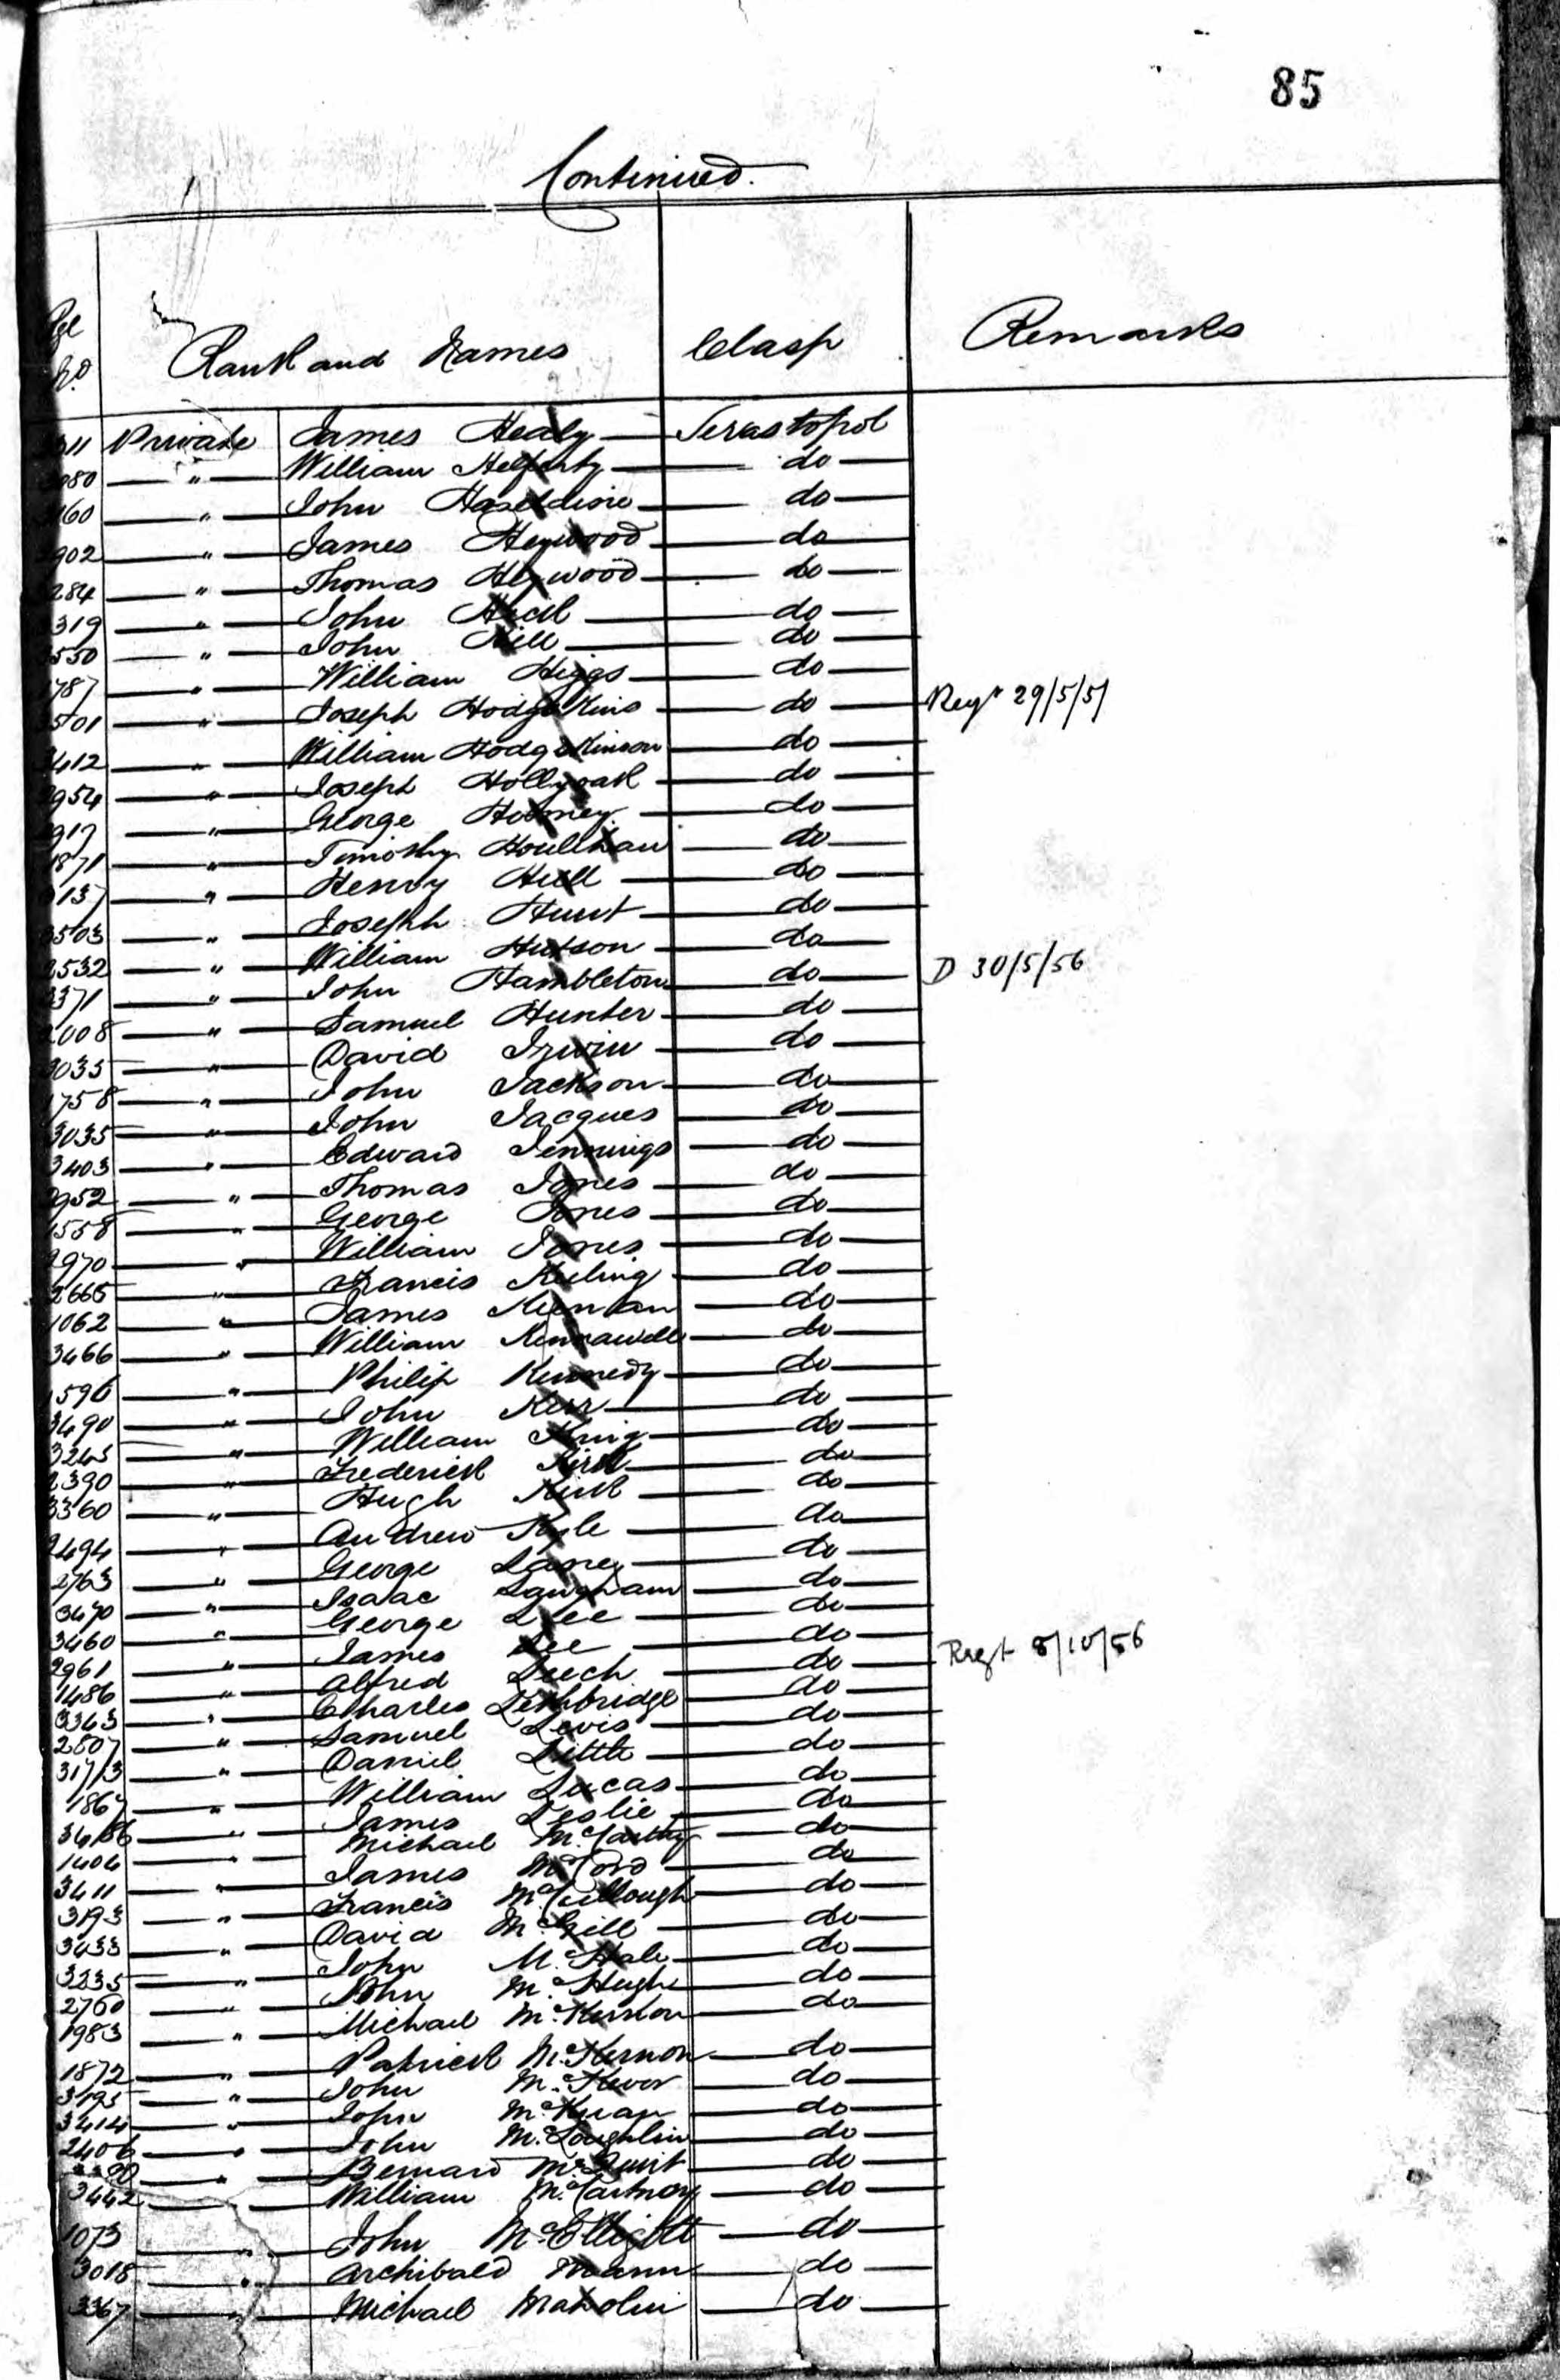 85
Continued.
Rank and Names Clasp Remarks
311 Private James Healy Sevastopol
080 " William do
160 " John Haseldine do
902 " James Heywood do
284 " Thomas Heywood do
319 " John do
550 " John Hill do
787 " William Higgs do
501 " Joseph Hodgekins do Regt 29/5/5
412 " William Hodgekinson do
954 " Joseph Hollyoak do
917 " George do
871 " Timothy Houlihan do
137 " Henry Hull do
3503 " Joseph Hunt do
2532 " William Hutson do
3371 " John Hambleton do D 30/5/56
2008 " Samuel Hunter do
3035 " David Irwin do
1758 " John Jackson do
3035 " John Jacques do
3403 " Edward Jennings do
2952 " Thomas Jones do
1558 " George Jones do
2970 " William Jones do
2665 " Francis Keeling do
1062 " James Keenan do
3466 " William Kennawell do
1596 " Philip Kennedy do
3490 " John Kerr do
3245 " William King do
2390 " Frederick Kirk do
3360 " Hugh Kirk do
2494 " Andrew Kyle do
2763 " George Laney do
3470 " Isaac Langham do
3460 " George Lee do
2961 " James Lee do Regt 8/10/56
1486 " Alfred Leech do
3343 " Charles Lethbridge do
2807 " Samuel Levis do
3173 " Daniel Little do
1867 " William Lucas do
3486 " James Leslie do
1404 " Michael McCarthy do
3411 " James McCord do
3193 " Francis McCullough do
3433 " David McGill do
3235 " John McHale do
2760 " John McHugh do
1983 " Michael McKernon do
1872 " Patrick McKernon do
3195 " John do
3414 " John do
2406 " John McLoughlin do
" Bernard do
3442 " William McCartney do
1073 " John McElligott do
3018 " Archibald Mann do
3367 " Michael do